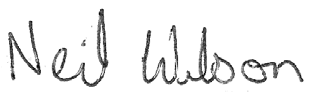 Neil Wilson